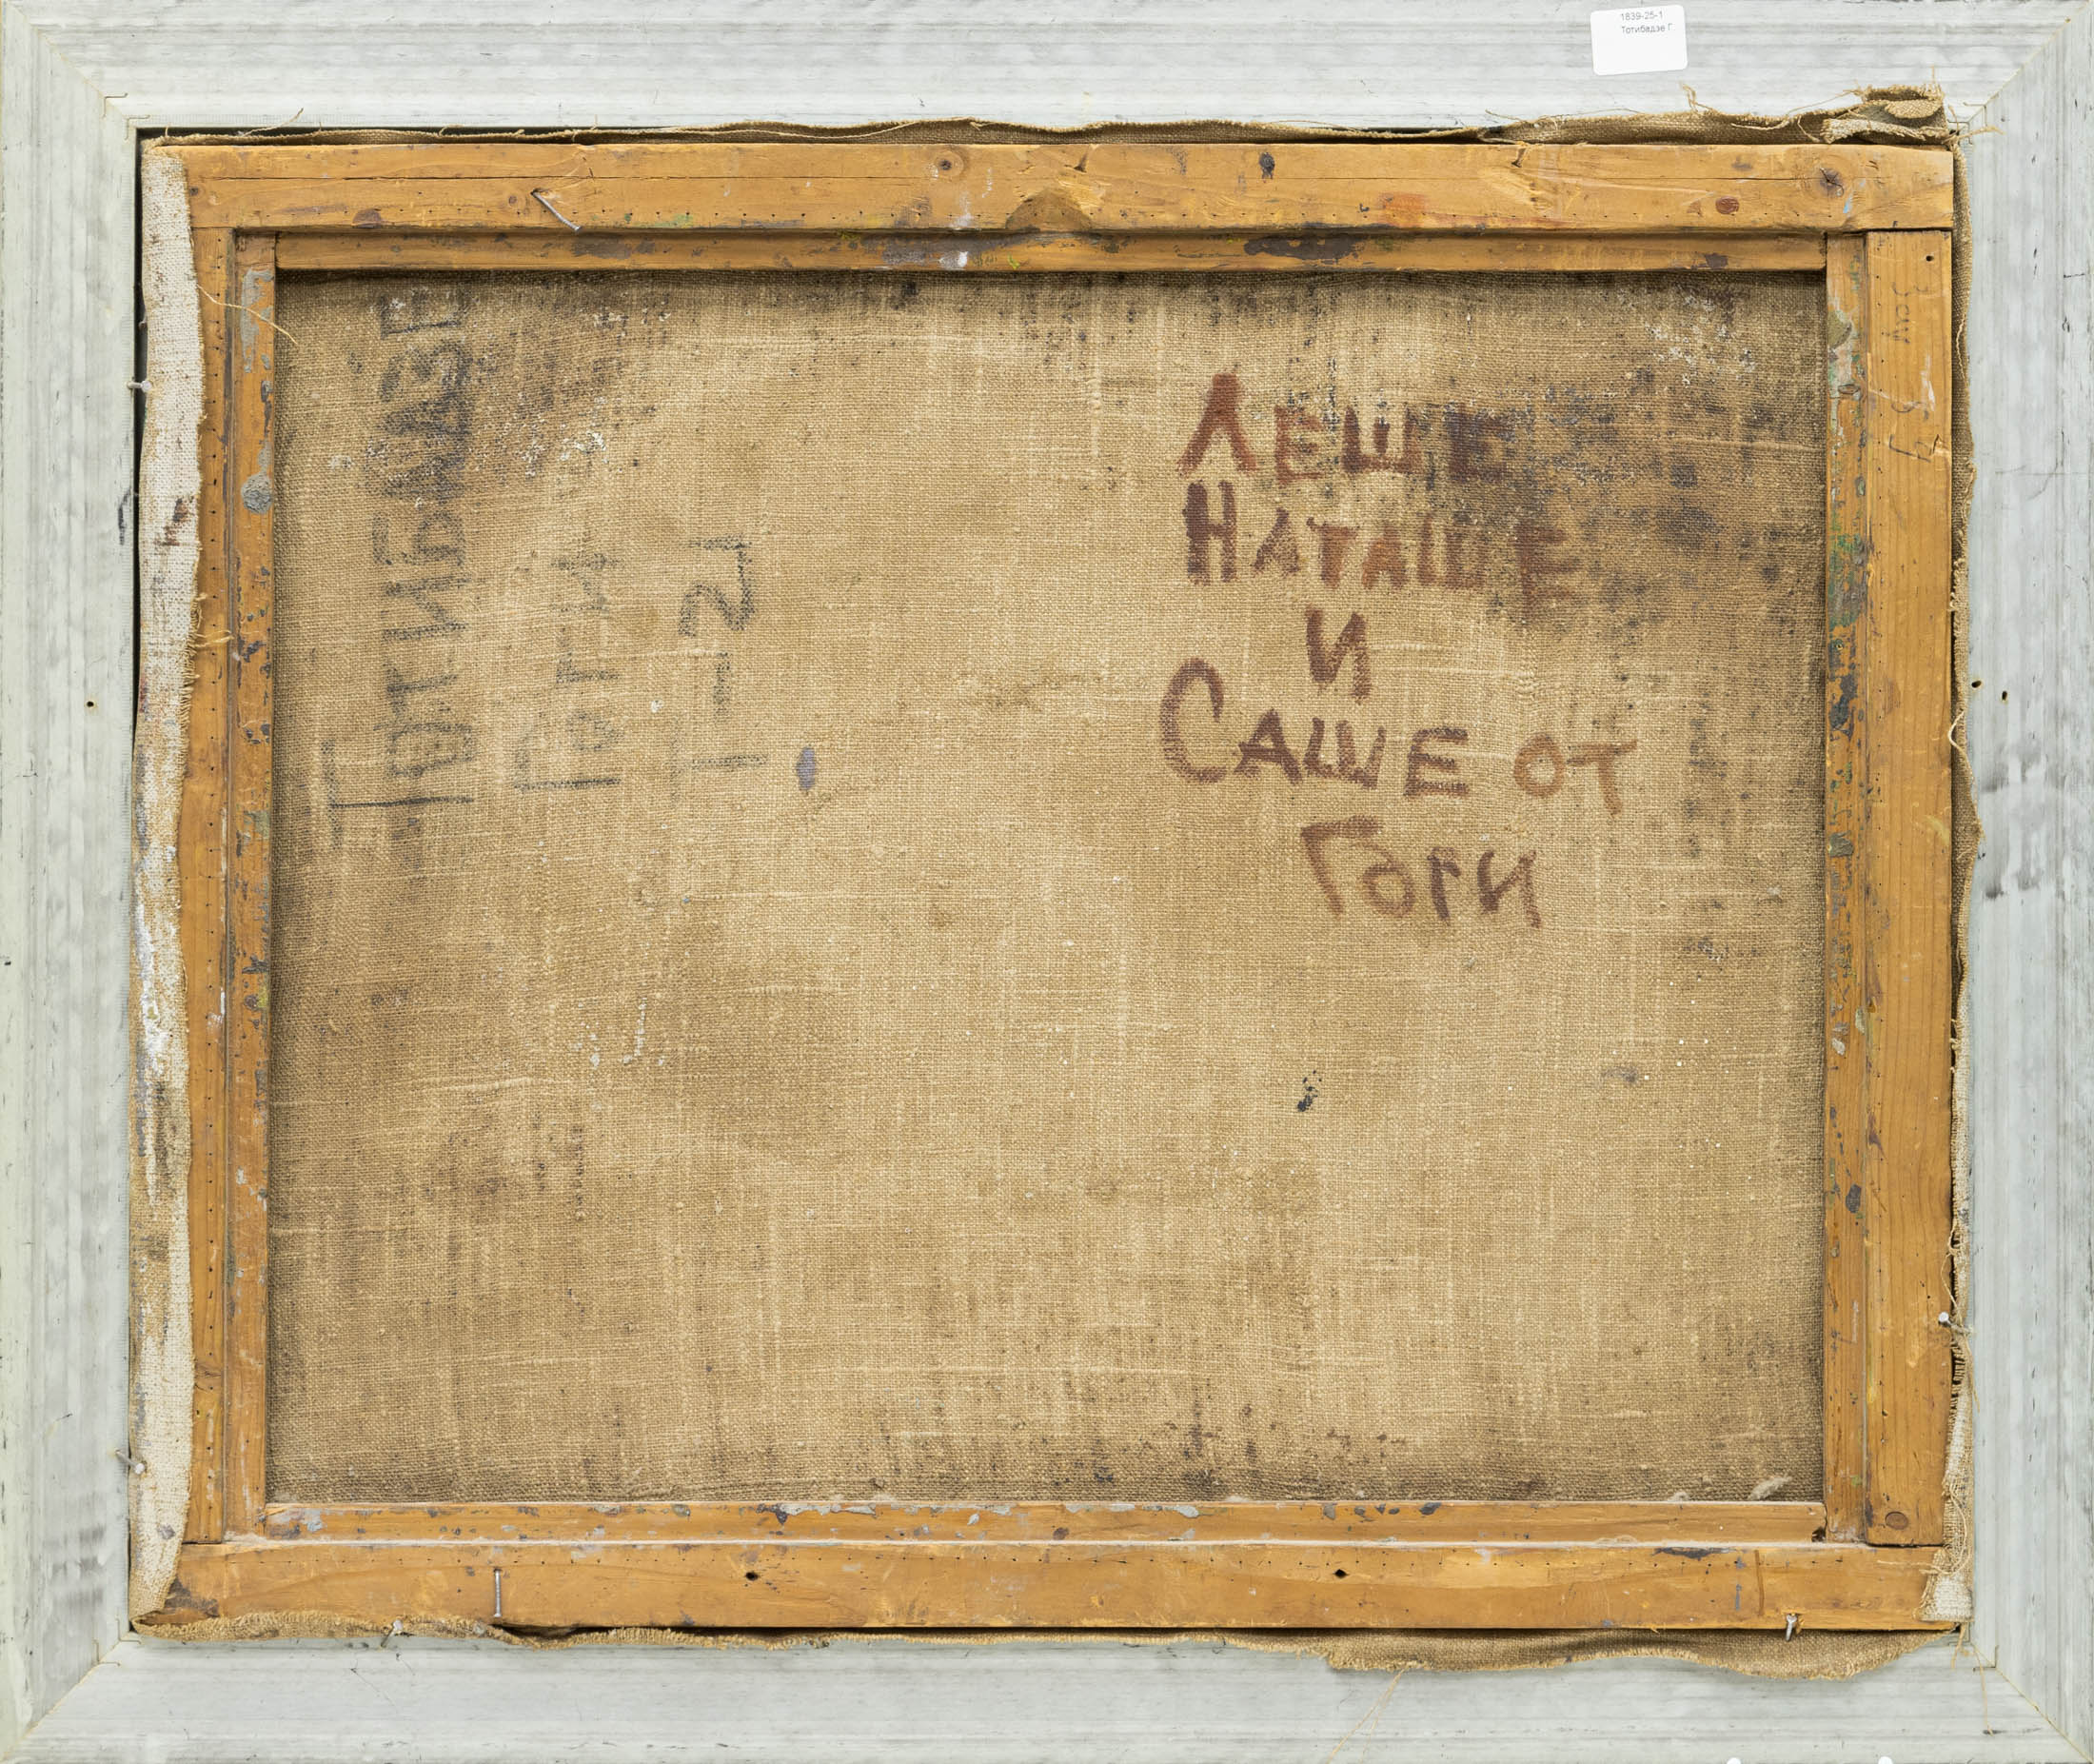 1839-25-1
Тотибадзе Г
ТОТИБАДЗЕ
Гоги
Т-21
ЛЕШЕ
НАТАШЕ
И
САШЕ ОТ
Гоги